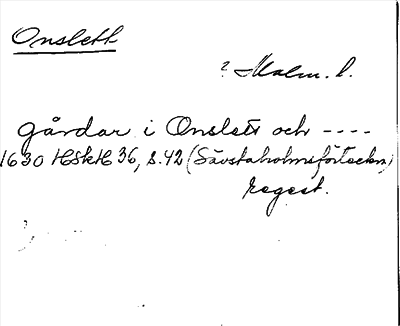 Onslett
? Malm. l.
gårdar i Onslett och ----
1630 HSkH 36, s. 42 (Sävstaholmsförteckn)
regest.